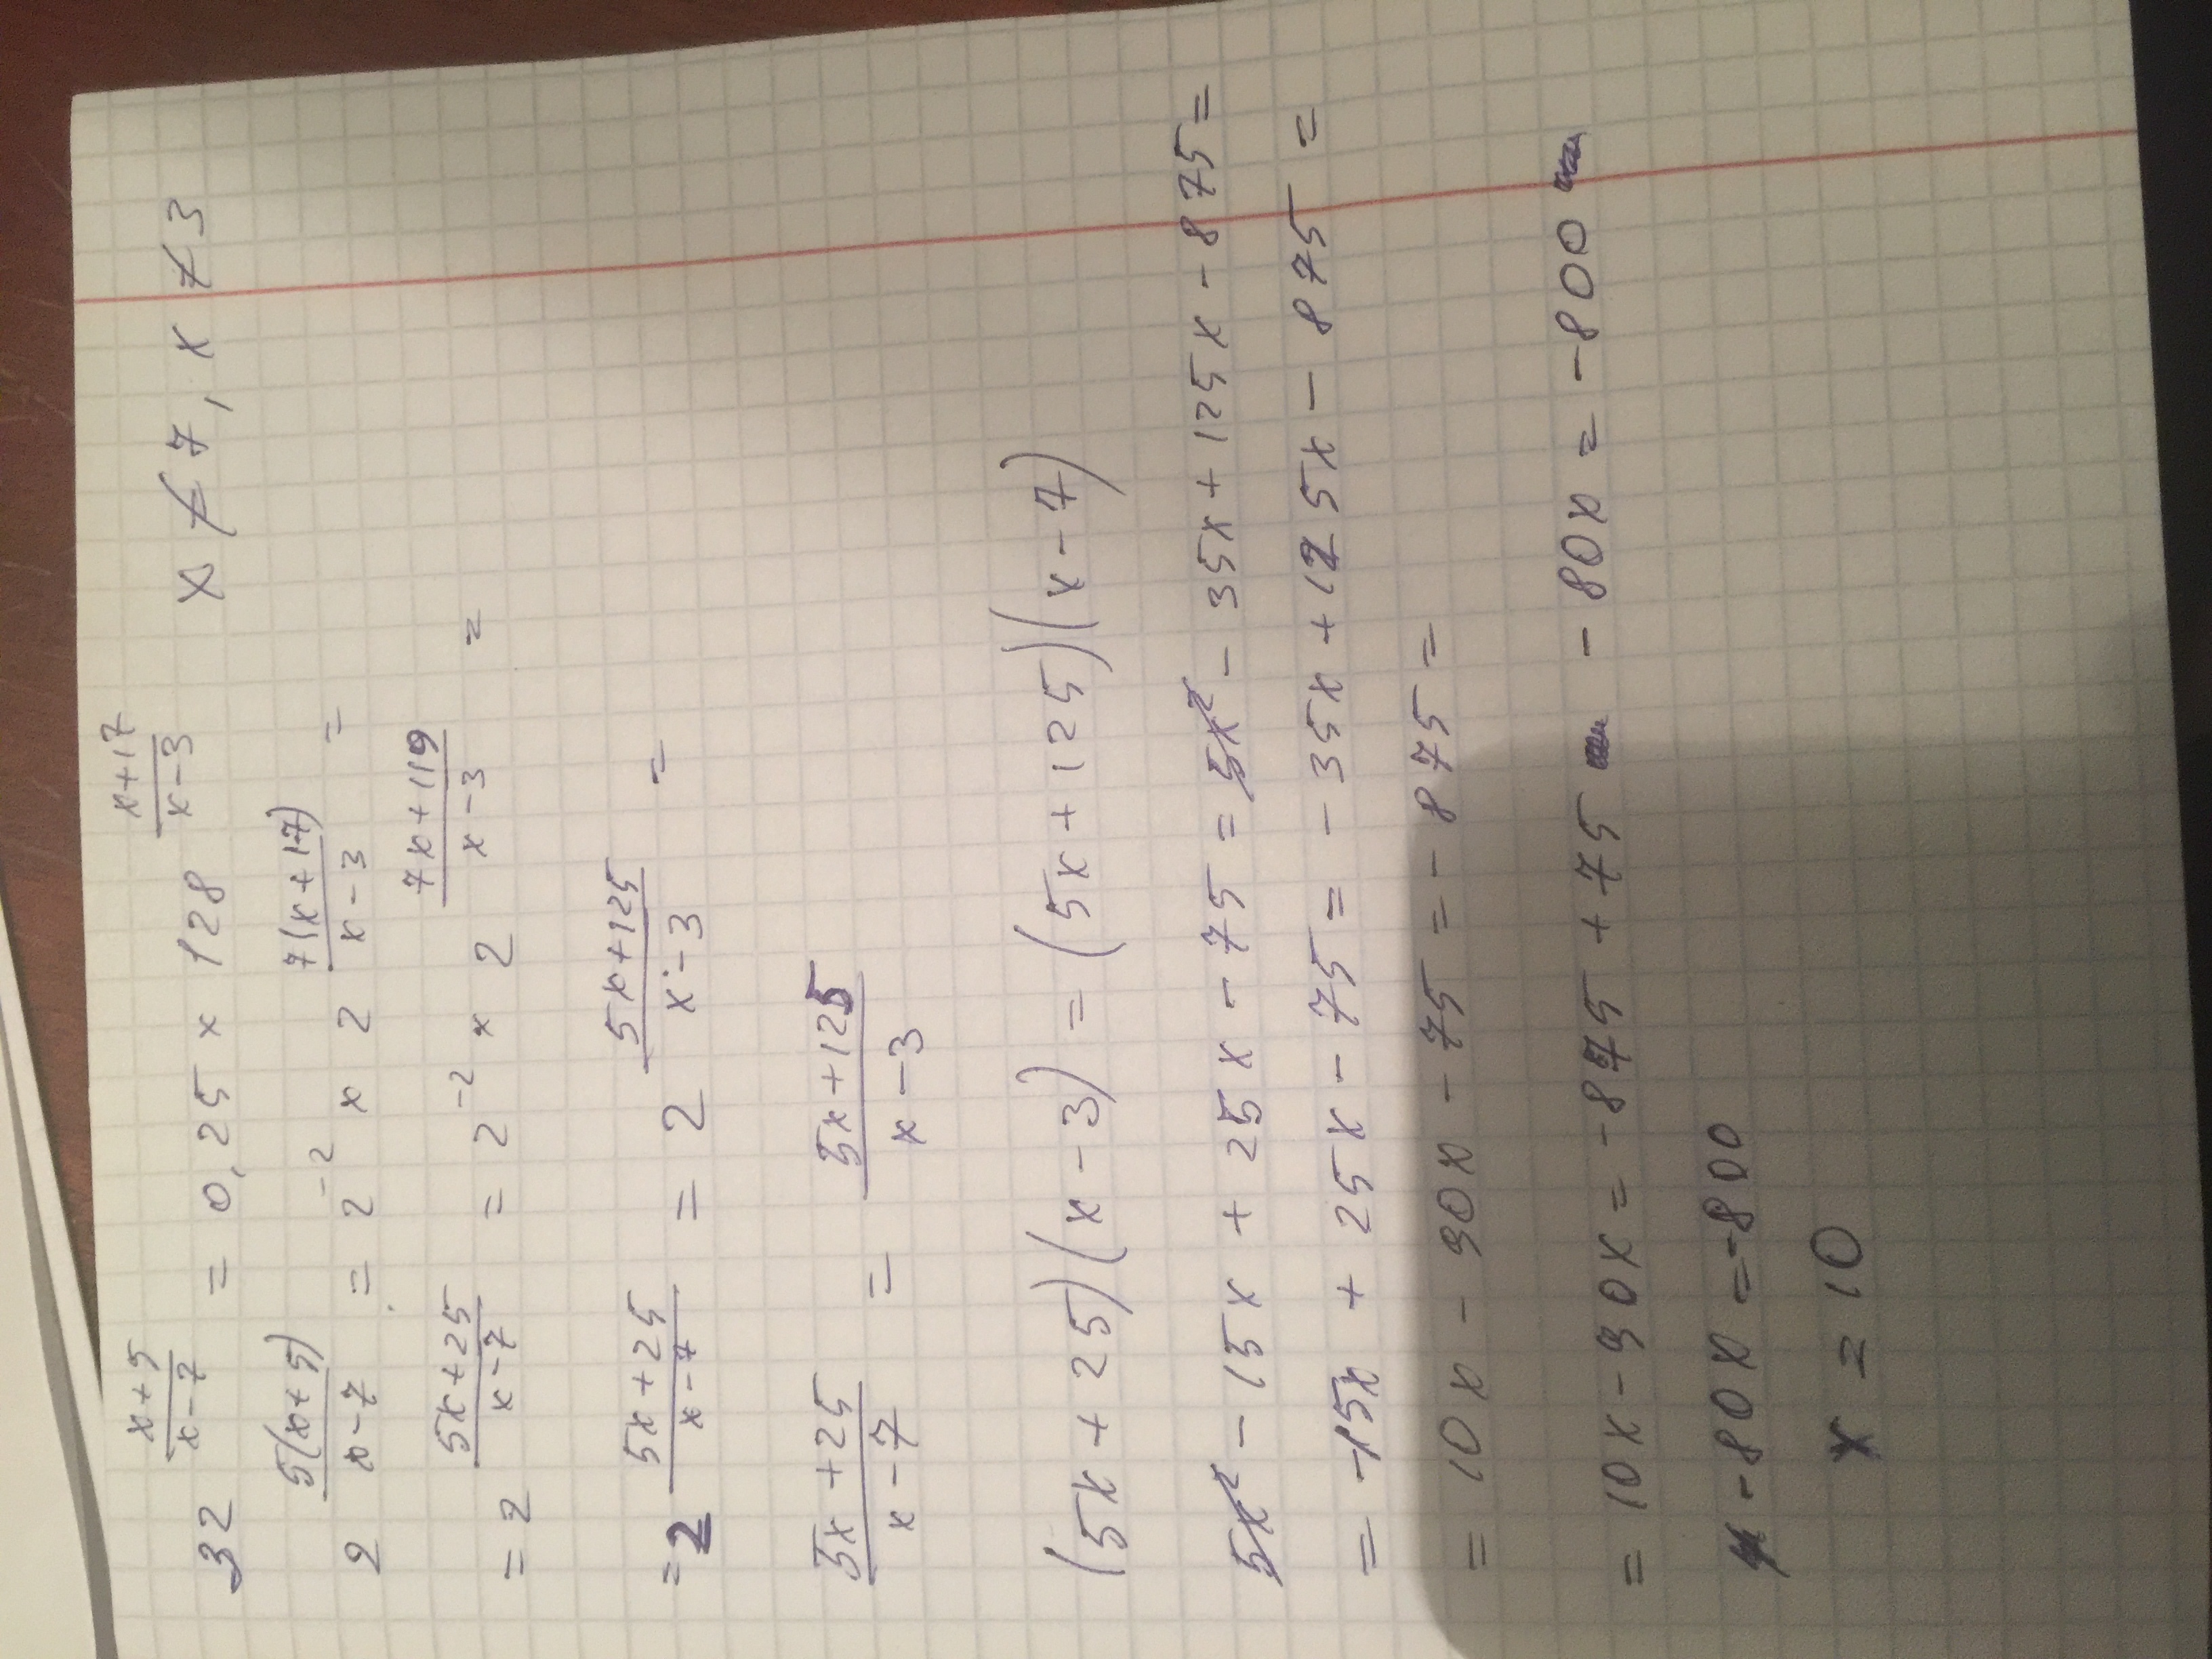 32^{\frac{x+5}{x-7}} = 0,25 × 128^{\frac{x+17}{x-3}} x ≠ 7, x ≠ 3
2^{\frac{5(x+5)}{x-7}} = 2^{-2} × 2^{\frac{7(x+17)}{x-3}} =
= 2^{\frac{5x+25}{x-7}} = 2^{-2} × 2^{\frac{7x+119}{x-3}} =
= 2^{\frac{5x+25}{x-7}} = 2^{\frac{5x+125}{x-3}} =
\frac{5x+25}{x-7} = \frac{5x+125}{x-3}
(5x+25)(x-3) = (5x+125)(x-7)
5x² - 15x + 25x - 75 = 5x² - 35x + 125x - 875 =
= -15x + 25x - 75 = - 35x + 125x - 875 =
= 10x - 90x - 75 = - 875 =
= 10x - 90x = -875 + 75 - 80x = -800
-80x = -800
x = 10